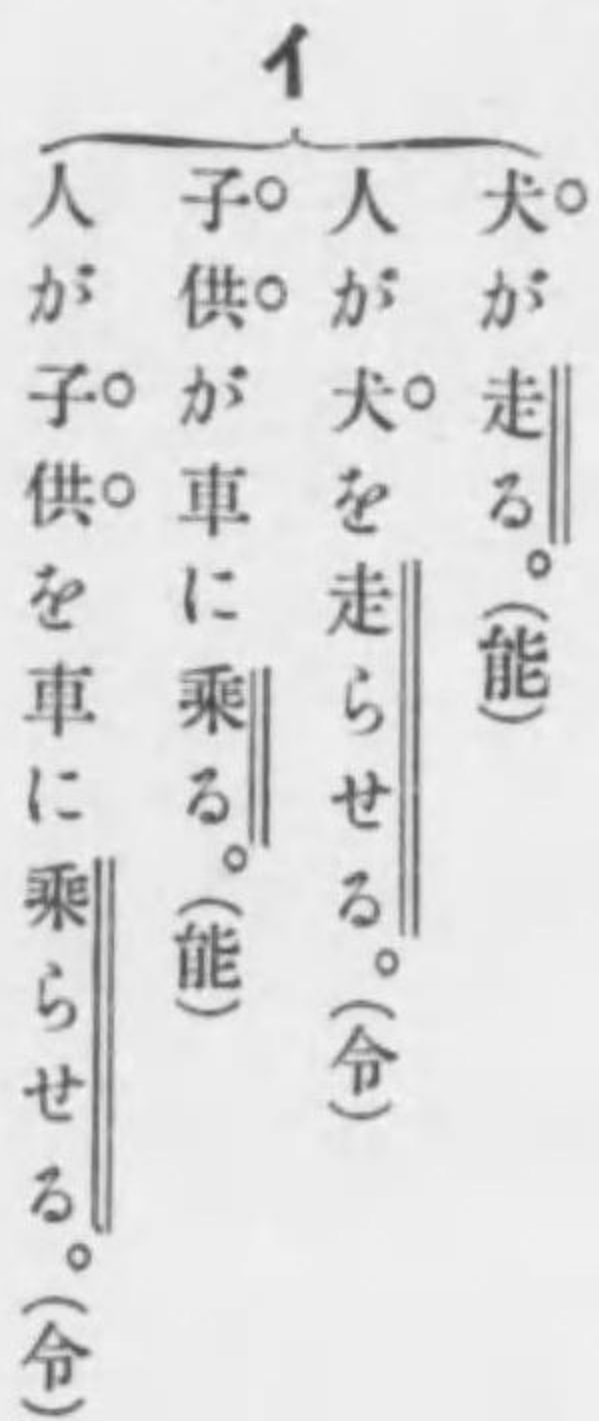 イ
犬が走る。(能)
人が犬を走らせる。(令)
子供が車に乗る。(能)
人が子供を車に乗らせる。(令)